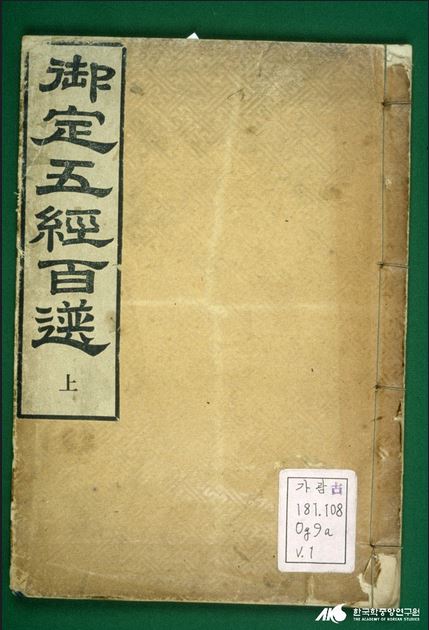 御定五經百選
上
가람古
181.108
Og9a
v.1
AKS 한국학중앙연구원
THE ACADEMY OF KOREAN STUDIES